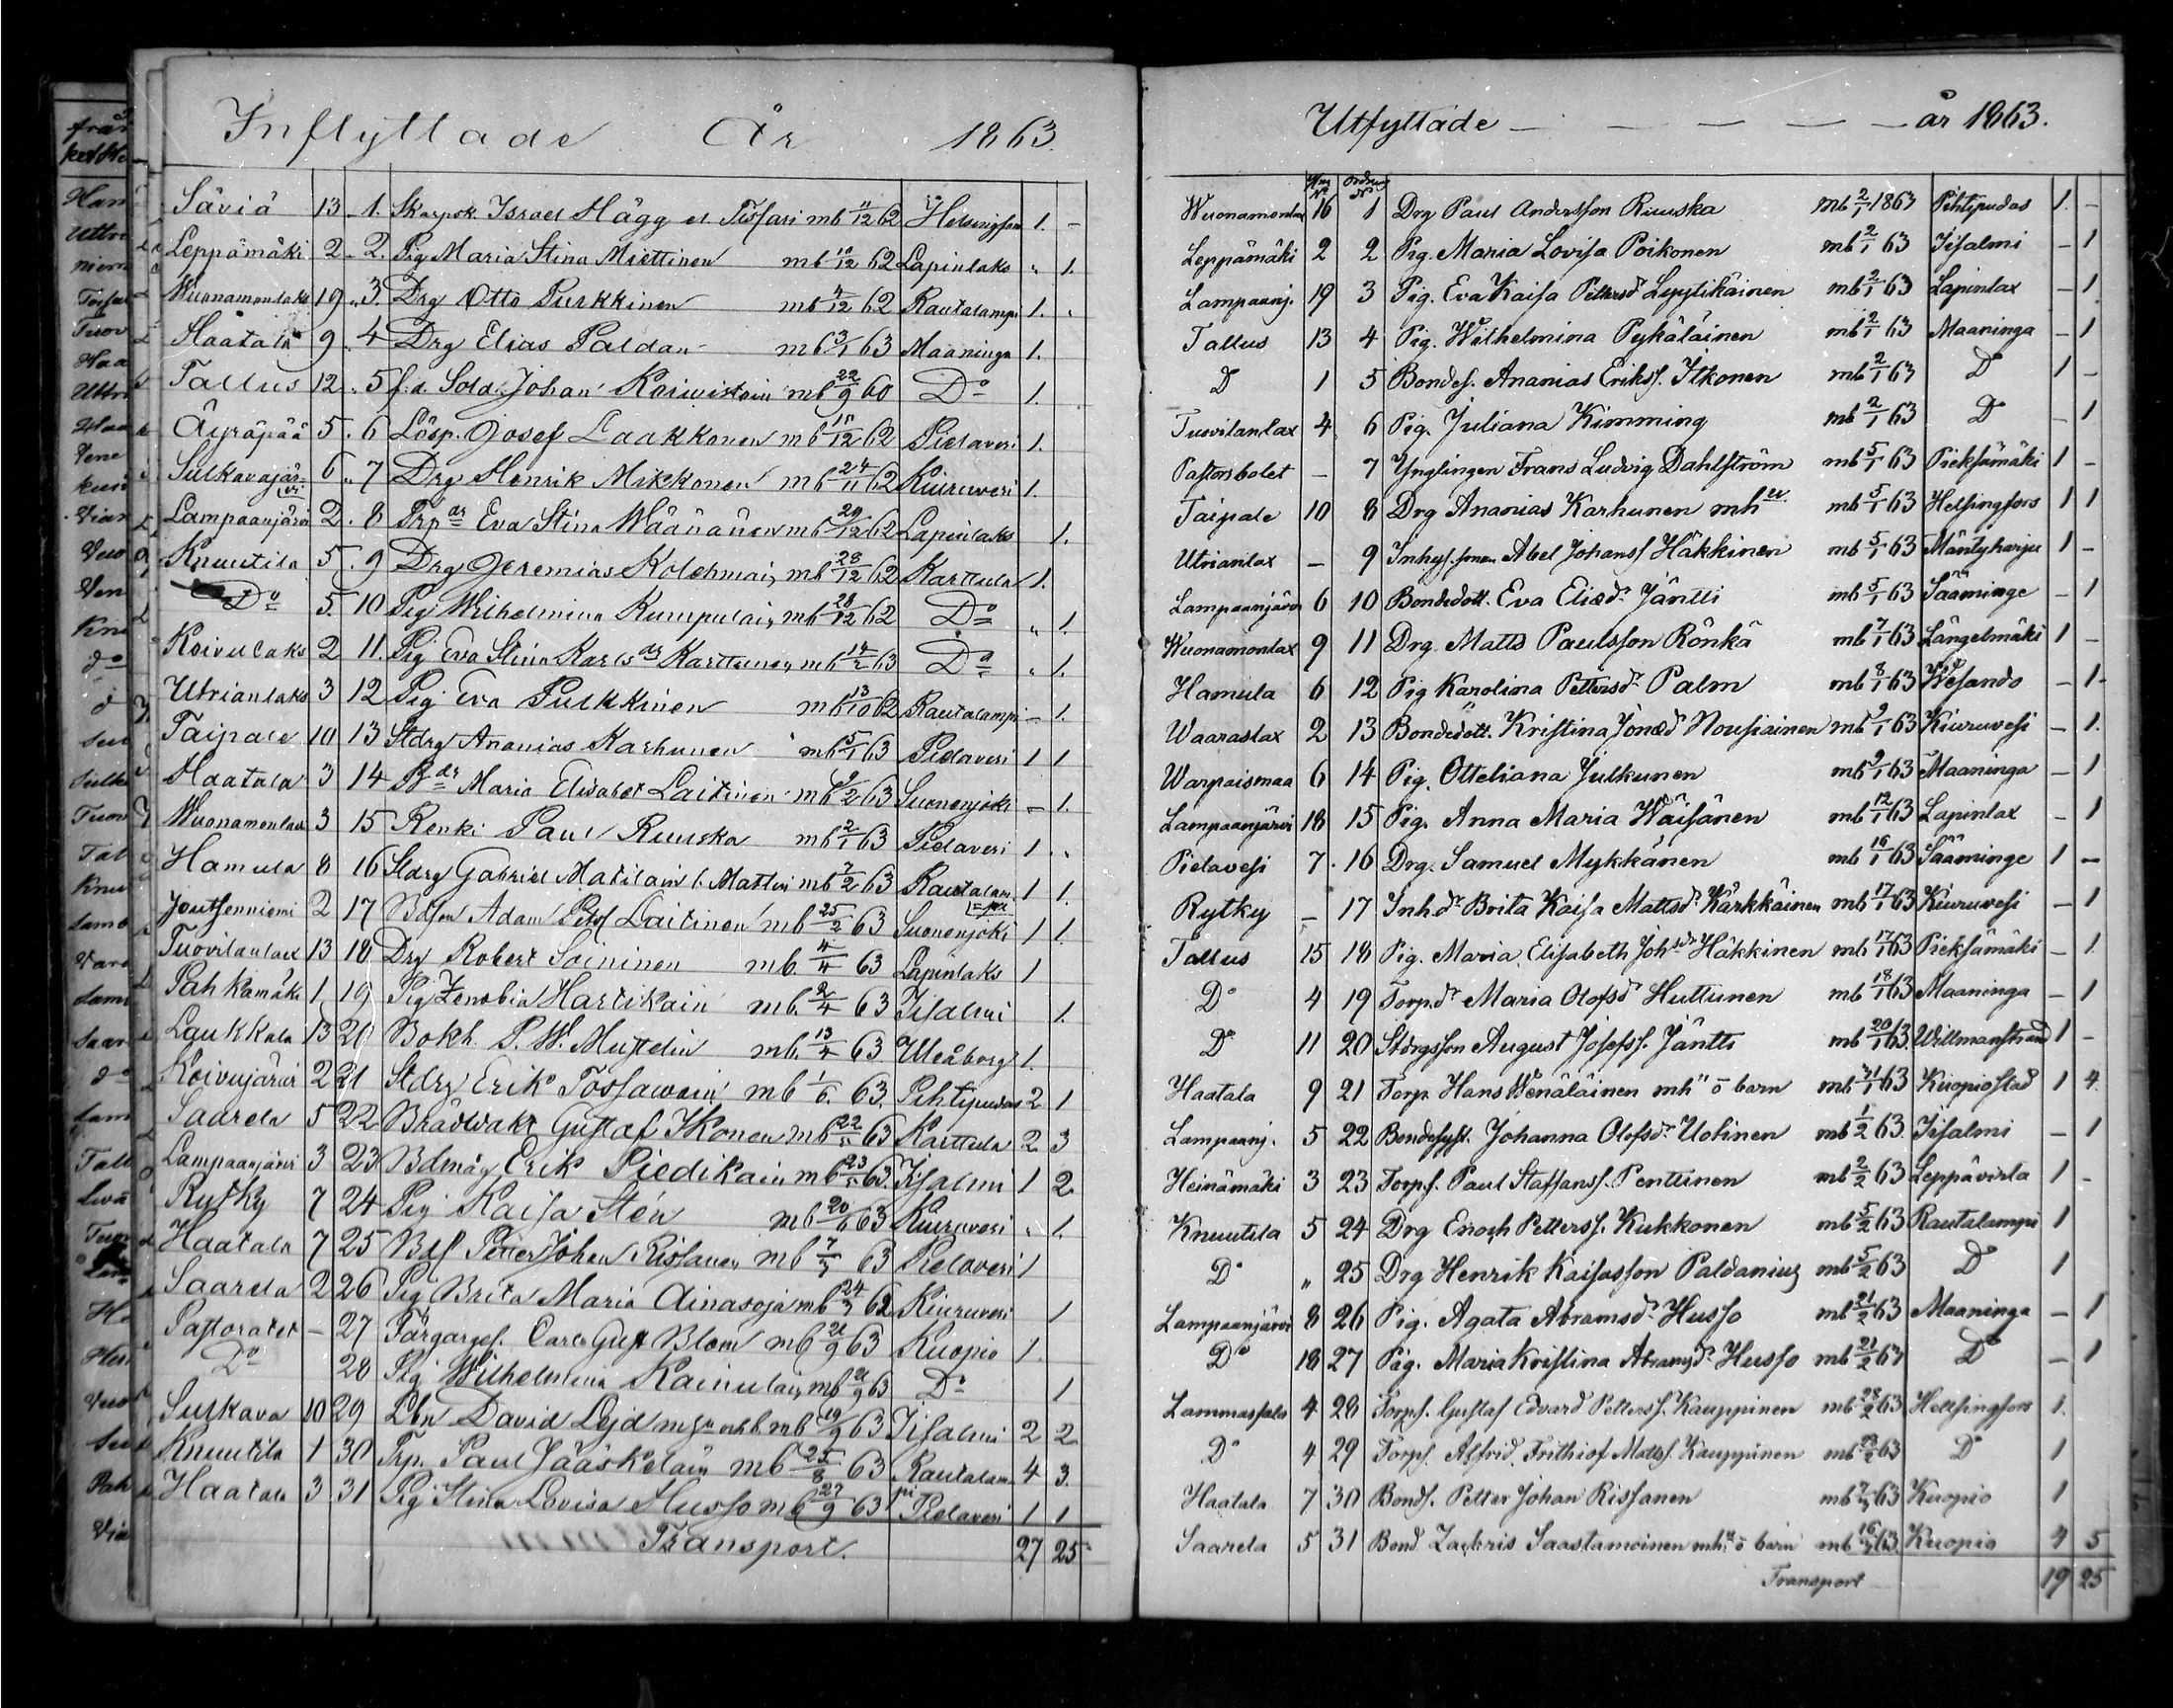 Inflyttade År 1863.
Säviä 13. 1. Skarpsk. Israel Hägg mb 11/12 62 Helsingfors 1. -
Leppämäki 2. 2. Pig Maria Stina Miettinen mb 10/12 62 Lapinlaks " 1.
Wuonamonlaks 19. 3. Drg Otto Purkkinen mb 4/12 62 Rautalampi 1. "
Haatala 9. 4 Drg Elias Paldan mb 3/1 63 Maaninga 1.
Tallus 12. 5 f.d. Sold. Johan Koiwistoin mb 22/9 60 Do 1.
Äyräpää 5. 6 Lösp. Josef Laakkonen mb 15/12 62 Pielavesi 1.
Sulkavajär- 6. 7 Drg Henrik Mikkonen mb 24/11 62 Kiuruvesi 1.
vi
Lampaanjärvi 2. 8 Trp dr Eva Stina Wäänänen mb 29/12 62 Lapinlaks 1.
Knuutila 5. 9 Drg Jeremias Kolehmain mb 28/12 62 Karttula 1.
Do 5. 10 Pig Wilhelmina Kumpulain mb 28/12 62 Do " 1.
Koivulaks 2 11. Pig Eva Stina Karlsdr Karttunen mb 14/2 63 Do " 1.
Utrianlaks 3 12 Pig Eva Pulkkinen mb 13/10 62 Rautalampi - 1.
Taipale 10 13 Stdrg Ananias Karhunen mb 5/1 63 Pielavesi 1 1
Haatala 3 14 Bdr Maria Elisabet Laitinen mb 9/2 63 Suonenjoki - 1.
Wuonamonlax 3 15 Renki Paul Ruuska mb 2/1 63 Pielavesi 1 "
Hamula 8 16 Stdrg Gabriel Matilain l. Mattin mb 7/2 63 Rautalam- 1 1.
pi
Joutsenniemi 2 17 Bdson Adam Petf Laitinen mb 25/2 63 Suonenjoki 1 1.
Tuovilanlax 13 18 Drg Robert Soininen mb. 4/4 63 Lapinlaks 1
Pahkamäki 1 19 Pig Zenobia Hartikain mb. 2/4 63 Iisalmi 1.
Laukkala 13 20 Bokh. P. W. Mustelin mb. 13/4 63 Uleåborg 1.
Koivujärvi 2 21 Stdrg Erik Tossawain mb 1/6 63. Pihtipudas 2 1
Saarela 5 22 Brädwakt Gustaf Ikonen mb 22/5 63 Karttula 2 3
Lampaanjärvi 3 23 Bdmåg Erik Piedikain mb 23/5 63. Iisalmi 1 2
Rytky 7 24 Pig Kaisa Stén mb 20/6 63 Kiuruvesi " 1.
Haatala 7 25 Bdf Petter Johan Rissanen mb 7/3 63 Pielavesi 1
Saarela 2 26 Pig Brita Maria Ainasoja mb 24/3 62 Kiuruvesi 1
Pastoratet - 27 Färgargef. Carl Gust Blom mb 21/9 63 Kuopio 1.
Do 28 Pig Wilhelmina Kainulain mb 21/9 63 Do 1
Sulkava 10 29 Lbn David Lejd mb 19/9 63 Iisalmi 2 2
Knuutila 1 30 Trp. Paul Jääskeläin mb 25/8 63 Rautalam 4 3.
pi
Haatala 3 31 Pig Stina Lovisa Husso mb 27/9 63 Pielavesi 1 1
Transport. 27 25
Utflyttade - - - - - år 1863.
No Ordning No
Wuonamonlax 16 1 Drg Paul Andersson Ruuska mb 2/1 1863 Pihtipudas 1. -
Leppämäki 2 2 Pig. Maria Lovisa Poikonen mb 2/1 63 Iisalmi - 1
Lampaanj. 19 3 Pig. Eva Kaisa Pettersd Lyytikäinen mb 2/1 63 Lapinlax - 1
Tallus 13 4 Pig. Wilhelmina Pykäläinen mb 2/1 63 Maaninga - 1
D 1 5 Bondes. Ananias Eriksf. Itkonen mb 2/1 63 D 1 -
Tuovilanlax 4 6 Pig. Juliana Kimming mb 2/1 63 Do - 1
Pastorsbolet - 7 Ynglingen Frans Ludvig Dahlström mb 5/1 63 Pieksämäki 1 -
Taipale 10 8 Drg Ananias Karhunen mhu mb 5/1 63 Helsingfors 1 1
Utrianlax - 9 Inhys. sonen Abel Johansf Häkkinen mb 5/1 63 Mäntyharju 1 -
Lampaanjärvi 6 10 Bondedott. Eva Eliædr Jäntti mb 5/1 63 Sääminge - 1
Wuonamonlax 9 11 Drg. Matts Paulsson Rönkä mb 7/1 63 Längelmäki 1 -
Hamula 6 12 Pig Karolina Pettersdr Palm mb 8/1 63 Wesando - 1.
Waaraslax 2 13 Bondedott. Kristina Jonædr Nousiainen mb 9/1 63 Kiuruvesi - 1.
Warpaismaa 6 14 Pig. Otteliana Julkunen mb 9/1 63 Maaninga - 1
Lampaanjärvi 18 15 Pig. Anna Maria Wäisänen mb 12/1 63 Lapinlax - 1
Pielavesi 7. 16 Drg. Samuel Mykkänen mb 16/1 63 Sääminge 1 -
Rytky - 17 Inh.dr Brita Kaisa Mattsdr Kärkkäinen mb 17/1 63 Kiuruvesi - 1
Tallus 15 18 Pig. Maria Elisabeth Johsdr Häkkinen mb 17/1 63 Pieksämäki - 1
Do 4 19 Torp.dr Maria Olofsdr Huttunen mb 18/1 63 Maaninga - 1
Do 11 20 Stdrgsson August Josefsf. Jäntti mb 20/1 63. Willmanstrand 1 -
Haatala 9 21 Torp. Hans Wenäläinen mhu o barn mb 31/1 63 Kuopio Stad 1 4.
Lampaanj. 5 22 Bondesyst. Johanna Olofsdr Uotinen mb 1/2 63. Iisalmi - 1
Heinämäki 3 23 Torpf. Paul Staffansf. Penttinen mb 2/2 63 Leppävirta 1 -
Knuutila 5 24 Drg Enoch Pettersf. Kukkonen mb 5/2 63 Rautalampi 1
Do " 25 Drg Henrik Kaisasson Paldanius mb 5/2 63 Do 1
Lampaanjärvi 8 26 Pig. Agata Abramsdr Husso mb 21/2 63 Maaninga - 1
Do 18 27 Pig. Maria Kristina Abramsdr Husso mb 21/2 63 Do - 1
Lammassalo 4 28 Torpf. Gustaf Edvard Pettersf. Kauppinen mb 28/2 63 Helsingfors 1.
Do 4 29 Torpf. Alfrid Frithiof Mattsf. Kauppinen mb 28/2 63 Do 1
Haatala 7 30 Bondf. Petter Johan Rissanen mb 7/3 63 Kuopio 1
Saarela 5 31 Bond. Zachris Saastamoinen mhu o barn mb 16/3 63. Kuopio 4 5
Transport 19 25